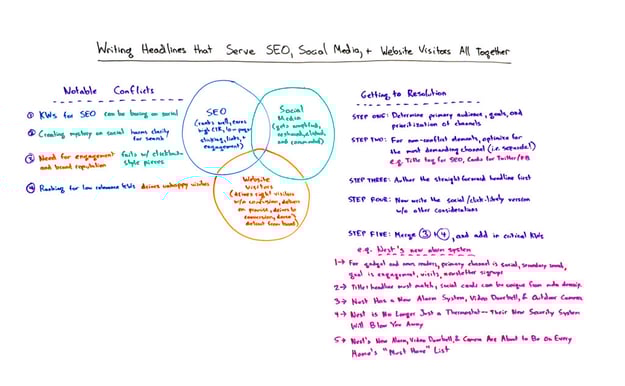 Writing Headlines that Serve SEO, Social Media, + Website Visitors All Together
Notable Conflicts
① KWs for SEO can be boring on social
② Creating mystery on social harms clarity
for search
③ Need for engagement fails w/ clickbait-
and brand reputation style pieces
④ Ranking for low relevance KWs drives unhappy visitors
SEO
(ranks well, earns
high CTR, low pogo-
sticking, links, +
engagement)
Social
Media
(gets amplified,
reshared, clicked,
and commented)
Website
Visitors
(drives right visitors
w/o confusion, delivers
on promise, drives to
conversion, doesn't
detract from brand)
Getting to Resolution
STEP ONE: Determine primary audience, goals, and
prioritization of channels
STEP TWO: For non-conflict elements, optimize for
the most demanding channel (i.e. separately)
e.g. Title tag for SEO, Cards for Twitter/FB
STEP THREE: Author the straightforward headline first
STEP FOUR: Now write the social/click-likely version
w/o other considerations
STEP FIVE: Merge ③ + ④, and add in critical KWs
e.g. Nest's new alarm system
1→ For gadget and news readers, primary channel is social, secondary search,
goal is engagement, visits, newsletter signups
2→ Title + headline must match, social cards can be unique from
3→ Nest Has a New Alarm System, Video Doorbell, & Outdoor Camera
4→ Nest is No Longer Just a Thermostat - Their New Security System
Will Blow You Away
5→ Nest's New Alarm, Video Doorbell, & Camera Are About to Be On Every
Home's "Must Have" List